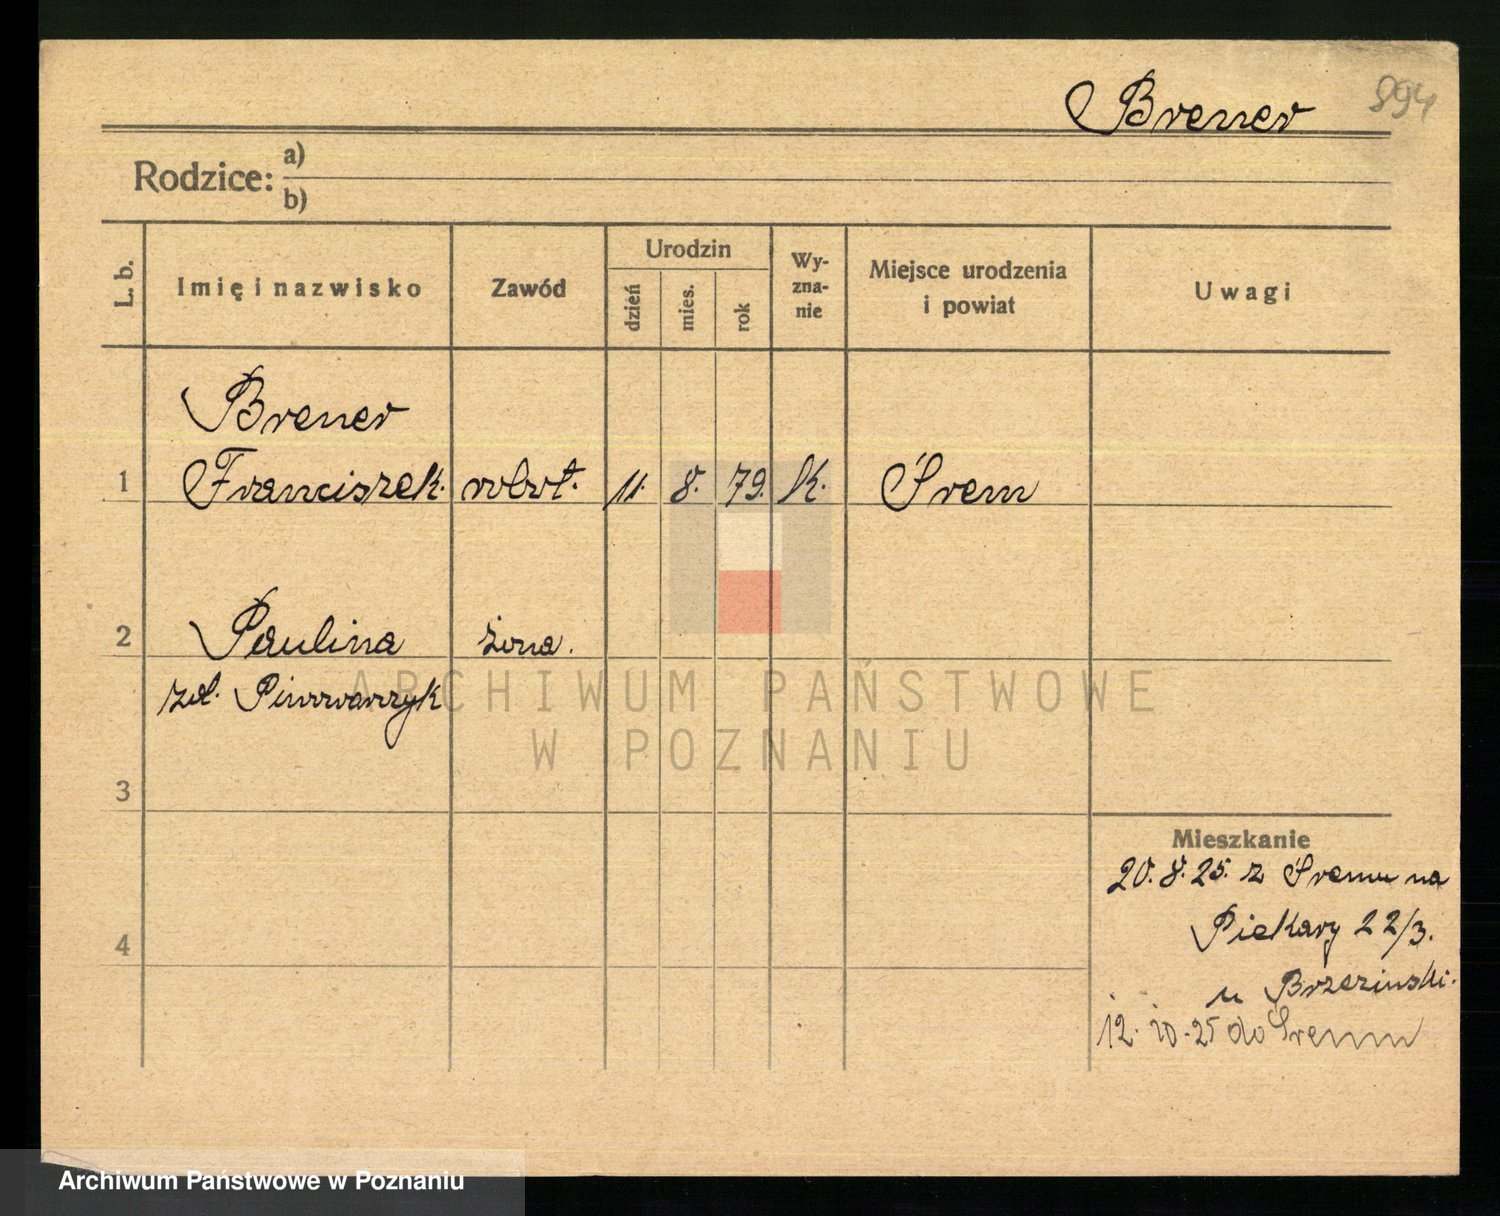 Brener 894
Rodzice: a)
b)
L. b. Imię i nazwisko Zawód Urodzin dzień mies. rok Wy-zna-nie Miejsce urodzenia i powiat Uwagi
Brener
1 Franciszek. robot. 11. 8. 79. k. Śrem
2 Paulina żona.
zd.
3
Mieszkanie
20. 8. 25. z Śremu na
Piekary 22/3.
4
u Brzezinski.
12. 10. 25 do Śremu
ARCHIWUM PAŃSTWOWE
W POZNANIU
Archiwum Państwowe w Poznaniu